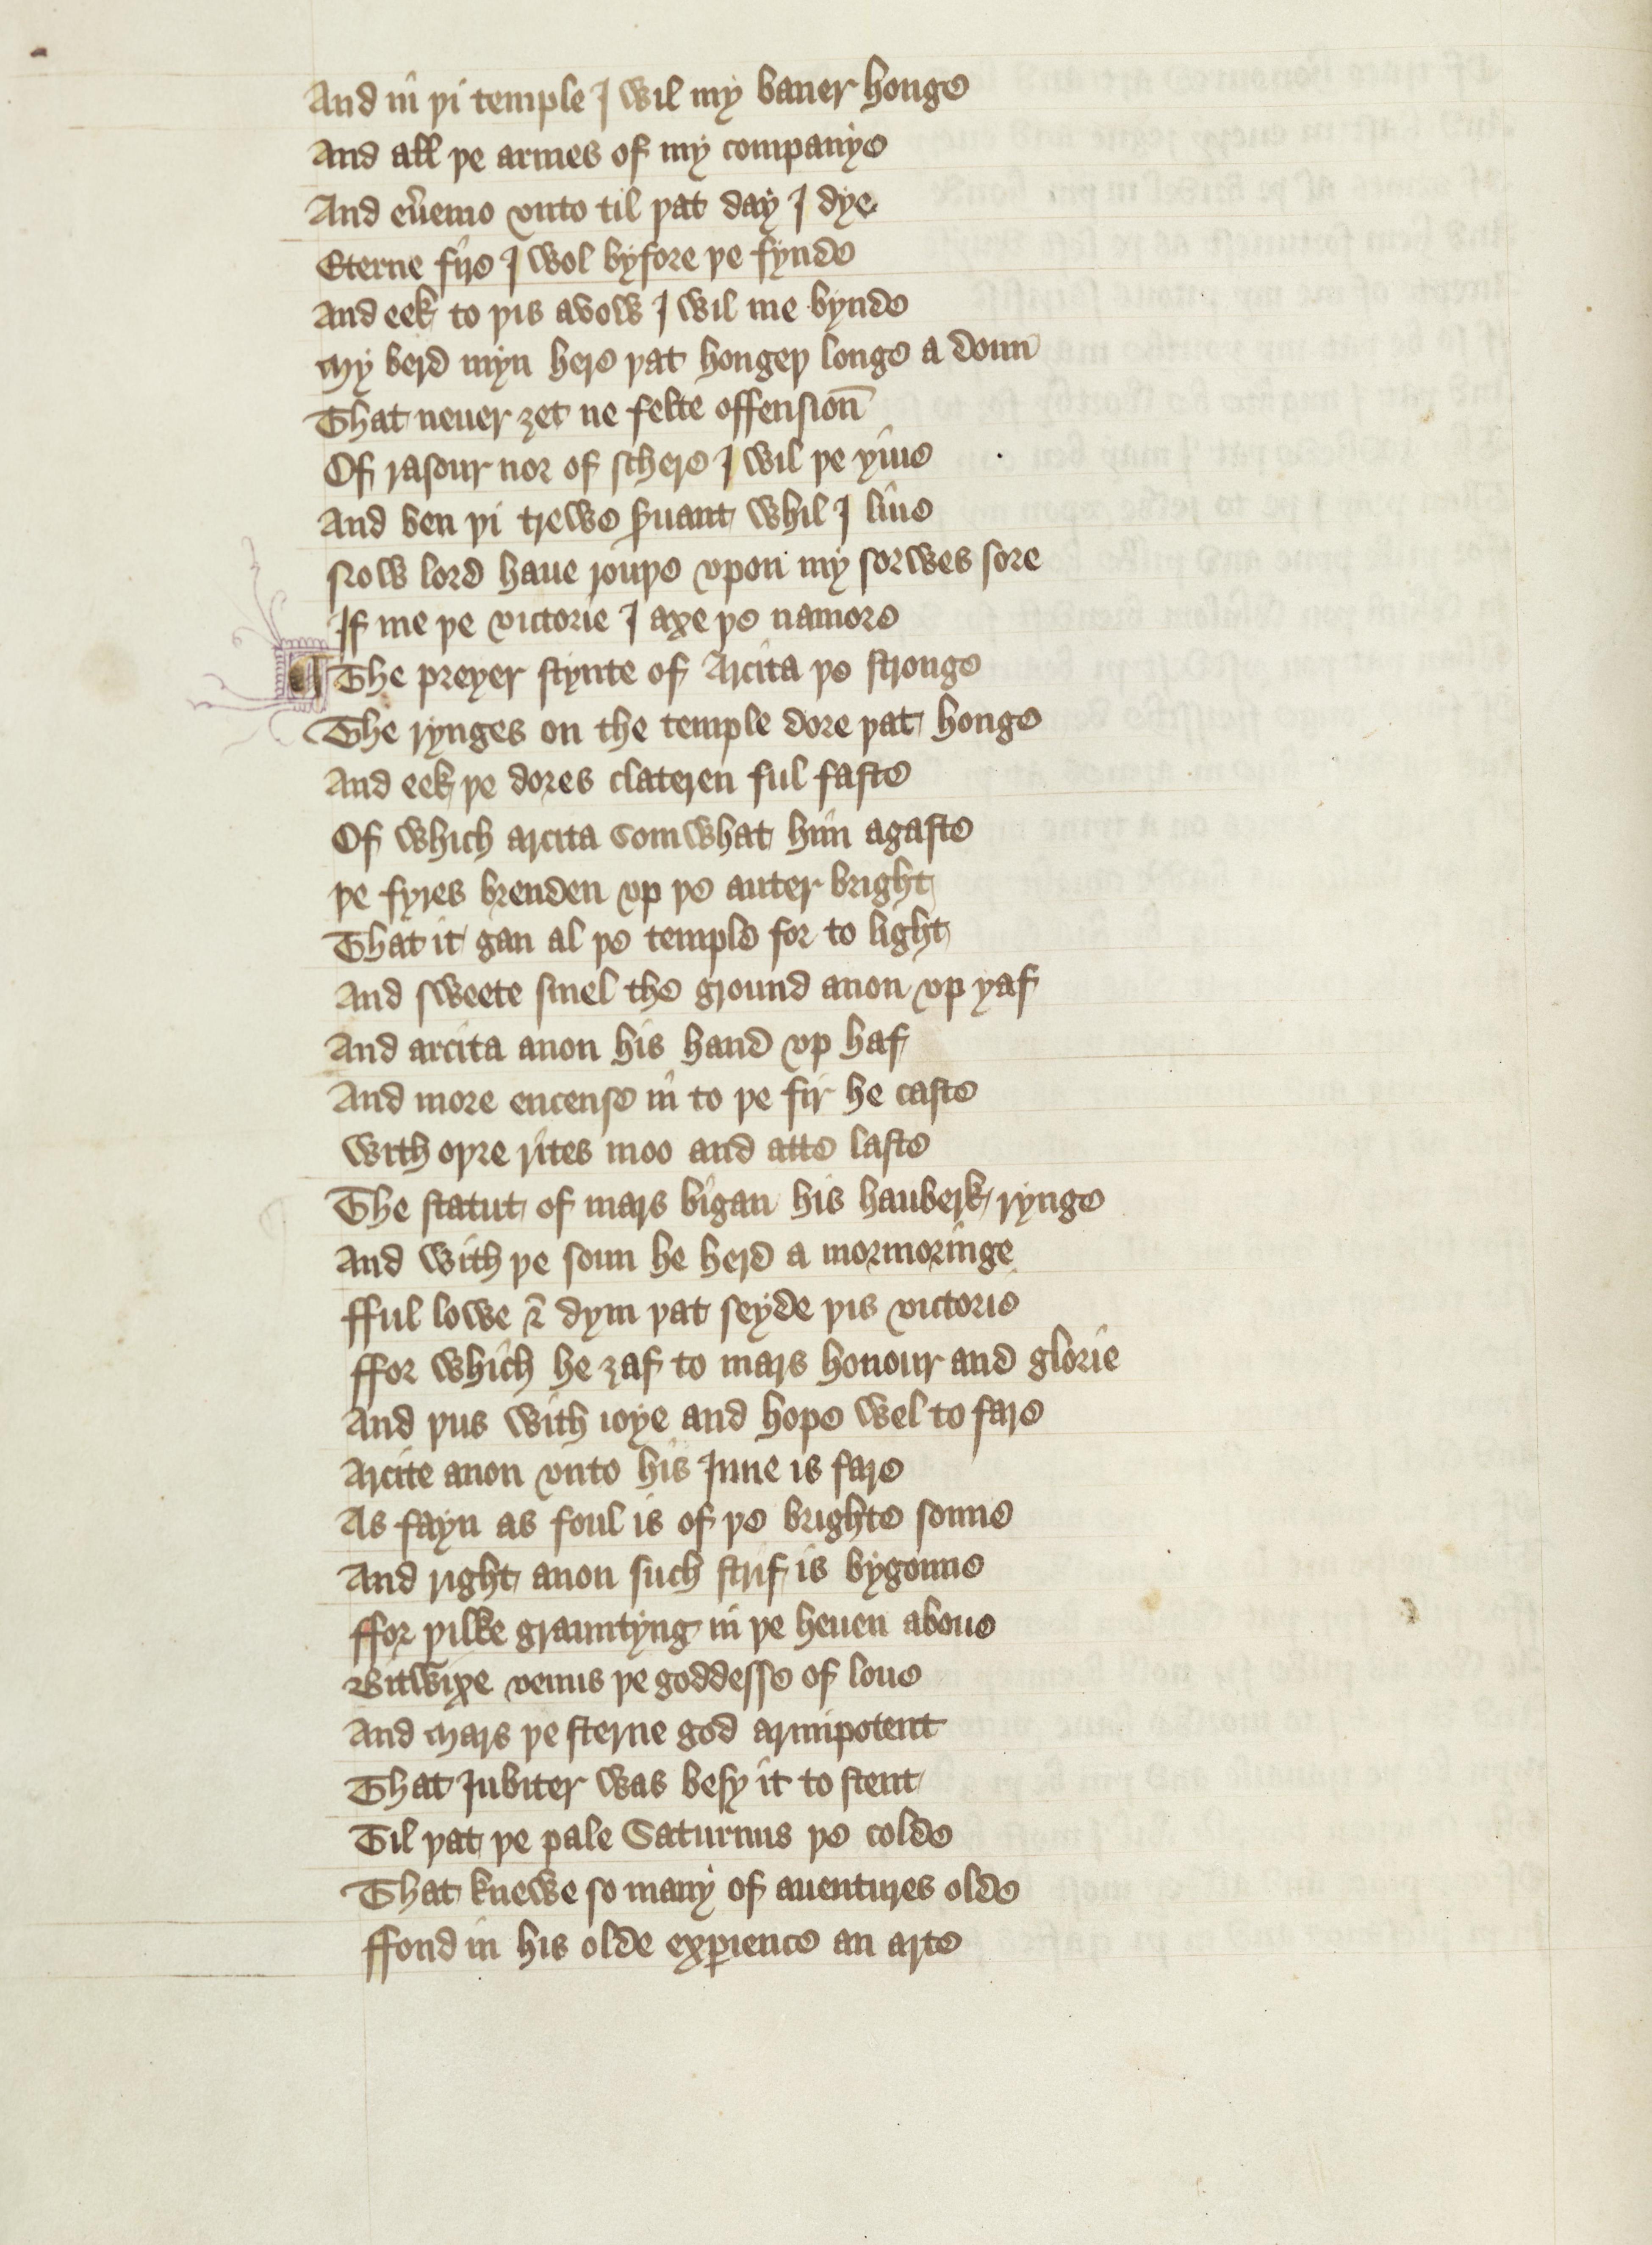 And in þi temple I wil my baner honge
And all þe armes of my companye
And eu̾emo vnto til þat day I dye
Eterne fijr I wol byfore þe fynde
And eek to þis avow I wil me bynde
My berd myn here þat hongeþ longe a doun
That neuer ȝet ne felte offensioun̄
Of rasour nor of schere I wil þe yiue
And ben þi trewe s̾uant whil I liue
Now lord haue rouþe vpon my sorwes sore
If me þe victorie I axe þe namore
¶ The preyer stynte of Arcita þe stronge
The rynges on the temple dore þat honge
And eek þe dores clateren ful faste
Of which arcita somwhat him agaste
þe fyres brenden vp þe auter bright
That it gan al þe temple for to light
And sweete smel the ground anon vp yaf
And arcita anon his hand vp haf
And more encense in to þe fir he caste
With oþre rites moo and atte laste
The statut of mars bigan his hauberk rynge
And with þe soun he herd a mormoringe
fful lowe & dym þat seyde þis victorie
ffor which he ȝaf to mars honour and glorie
And þus with ioye and hope wel to fare
Arcite anon vnto his Inne is fare
As fayn as foul is of þe brighte sonne
And right anon such strif is bygonne
ffor þilke grauntyng in þe heuen aboue
Bitwixe venus þe goddesse of loue
And Mars þe sterne god armipotent
That Jubiter was besy it to stent
Til þat þe pale Saturnus þe colde
That knewe so many of auentures olde
ffond in his olde exꝑience an arte